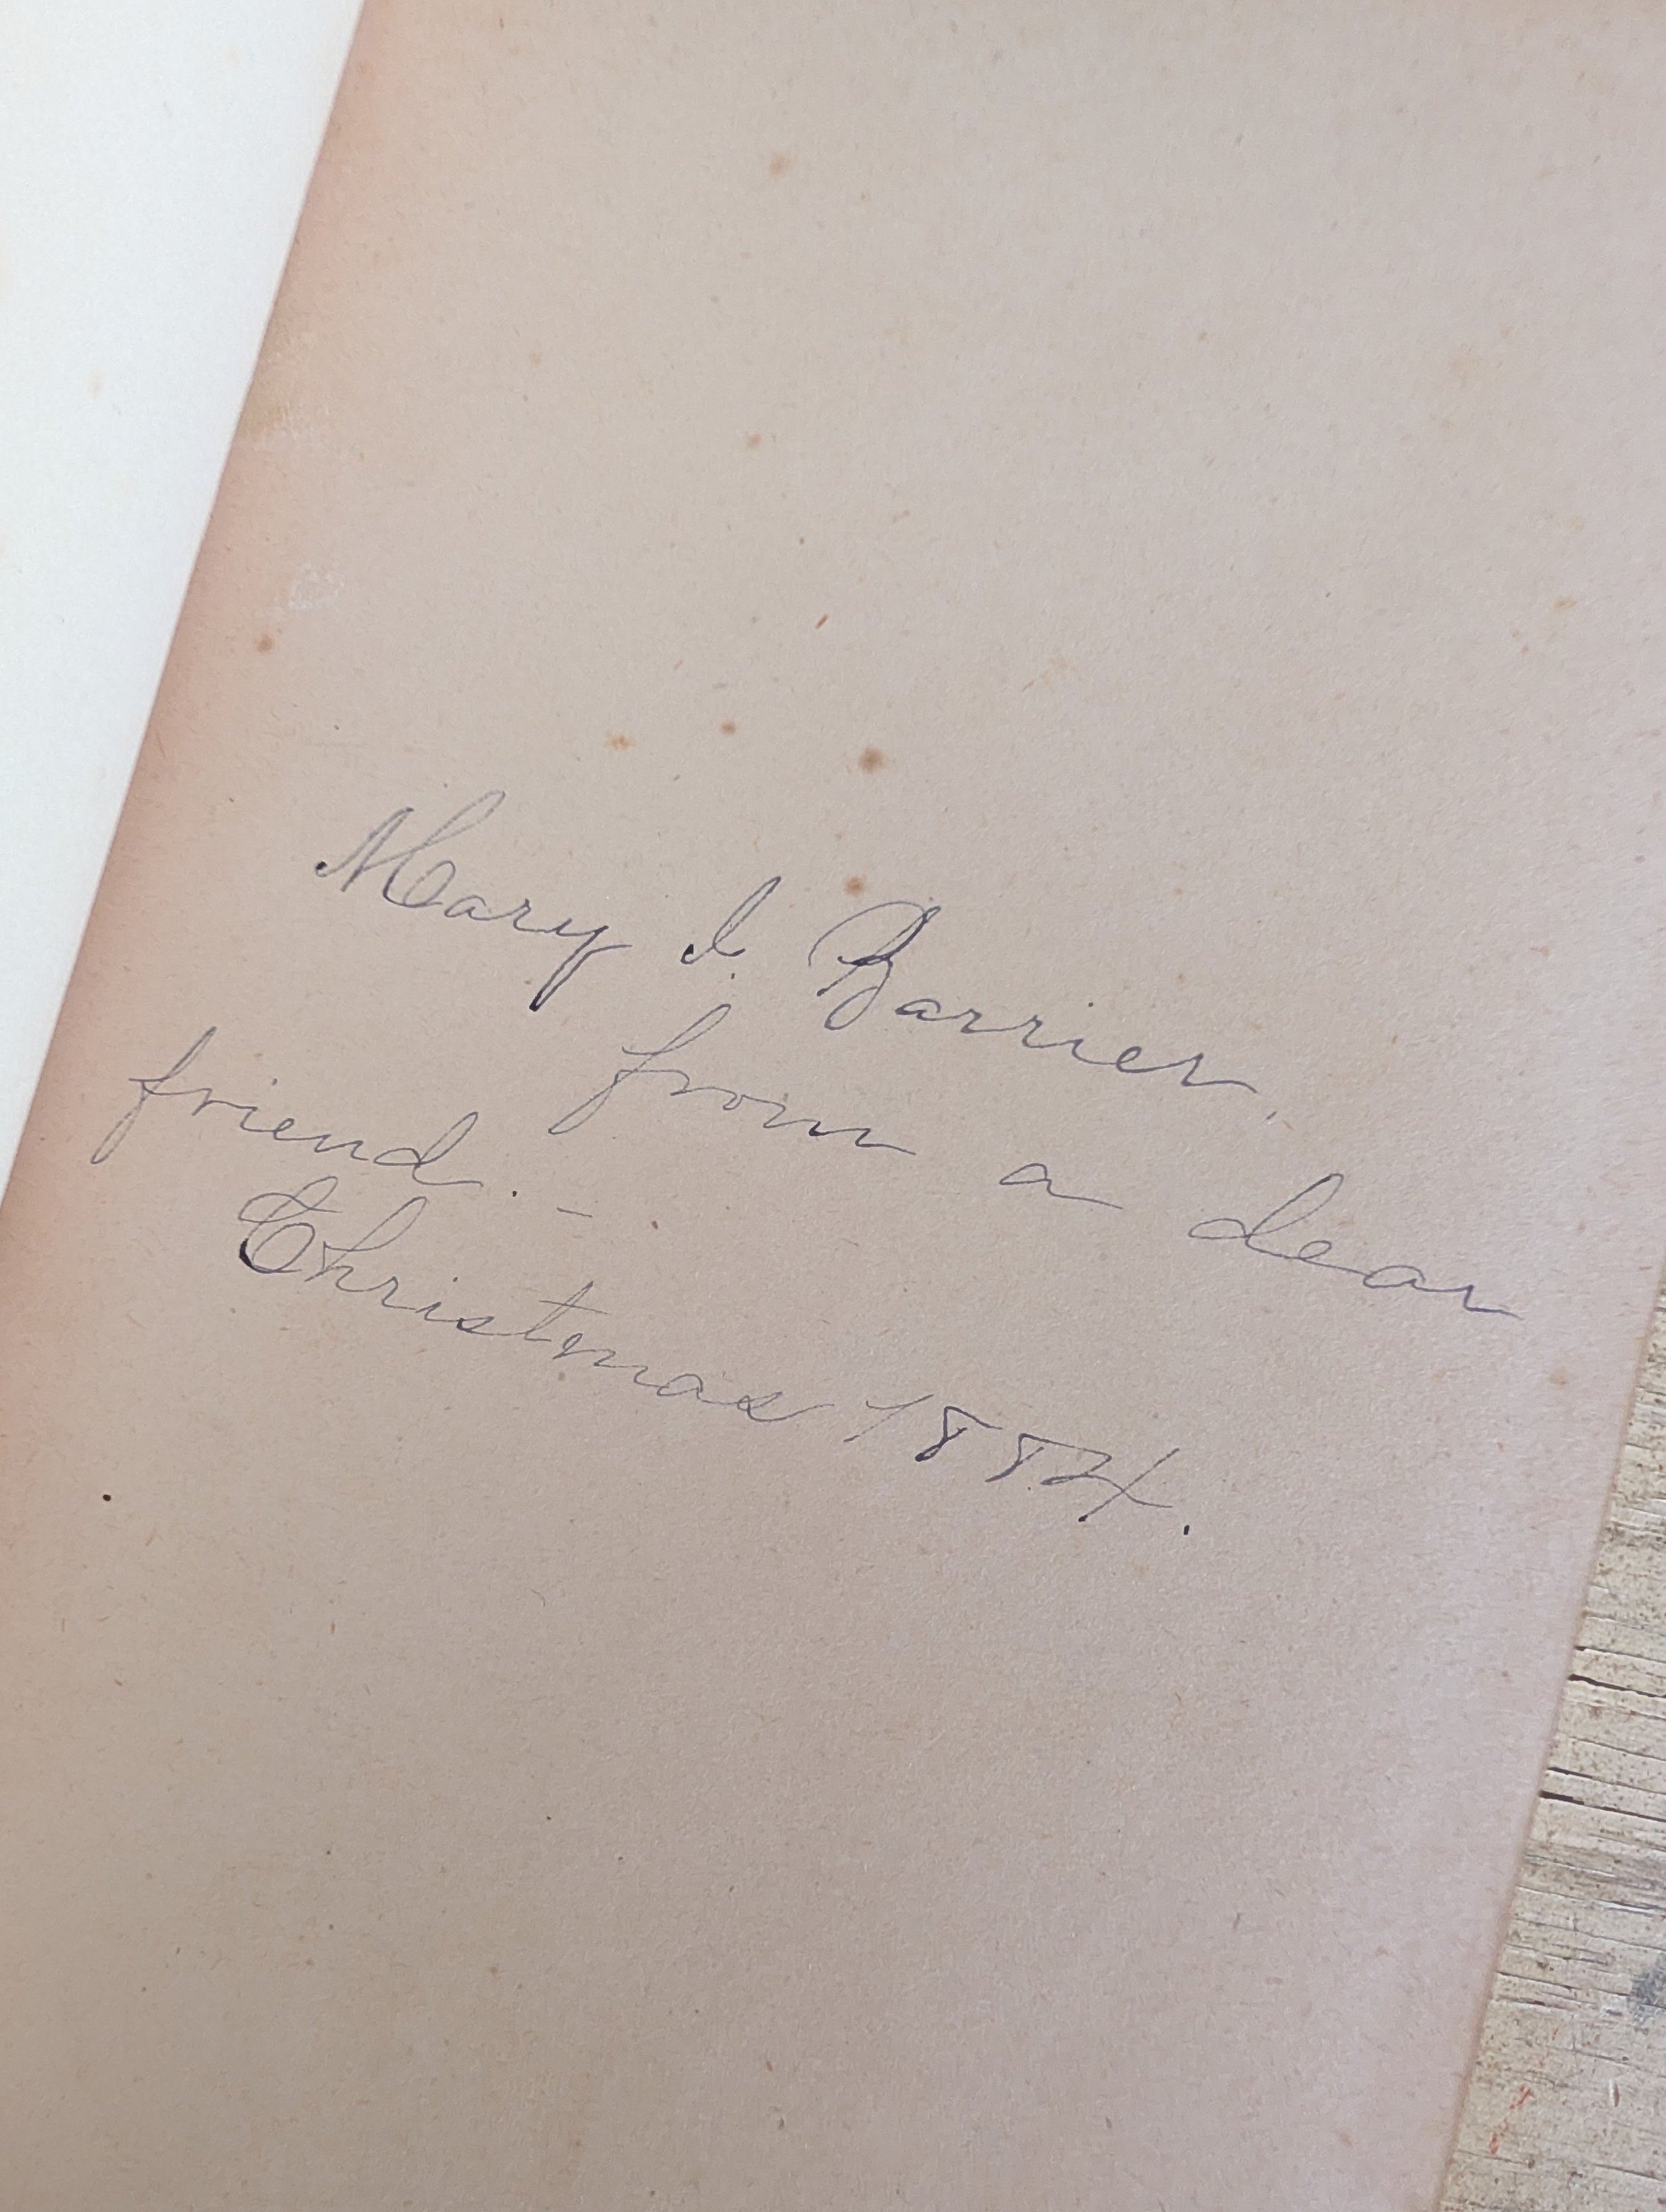 Mary I. Barrier.
from a dear
friend. -
Christmas 1884.